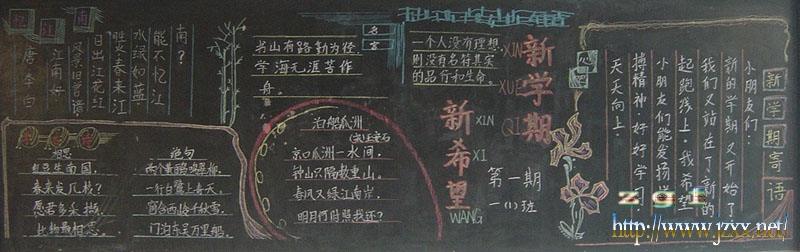 忆江南
唐·李白
江南好
风景旧曾谙
日出江花红
胜春来江
水绿如蓝
能不忆江
南？
相思
红豆生南国，
春来发几枝？
愿君多采撷，
此物最相思。
绝句
两个黄鹂鸣翠柳，
一行白鹭上青天。
窗含西岭千秋雪，
门泊东吴万里船。
名言
书山有路勤为径
学海无涯苦作
舟。
泊船瓜洲
(宋)王安石
京口瓜洲一水间，
钟山只隔数重山。
春风又绿江南岸，
明月何时照我还？
一个人没有理想
则没有名符其实
的品行和生命。
XIN
XUE
QI
新学期
新希望
XIN
XI
WANG
第一期
一(1)班
新学期寄语
小朋友们：
新的学期又开始了
我们又站在了新的
起跑线上。我希望
小朋友们能发扬拼
搏精神。好好学习
天天向上。
zgt
http://www.jzxx.net/